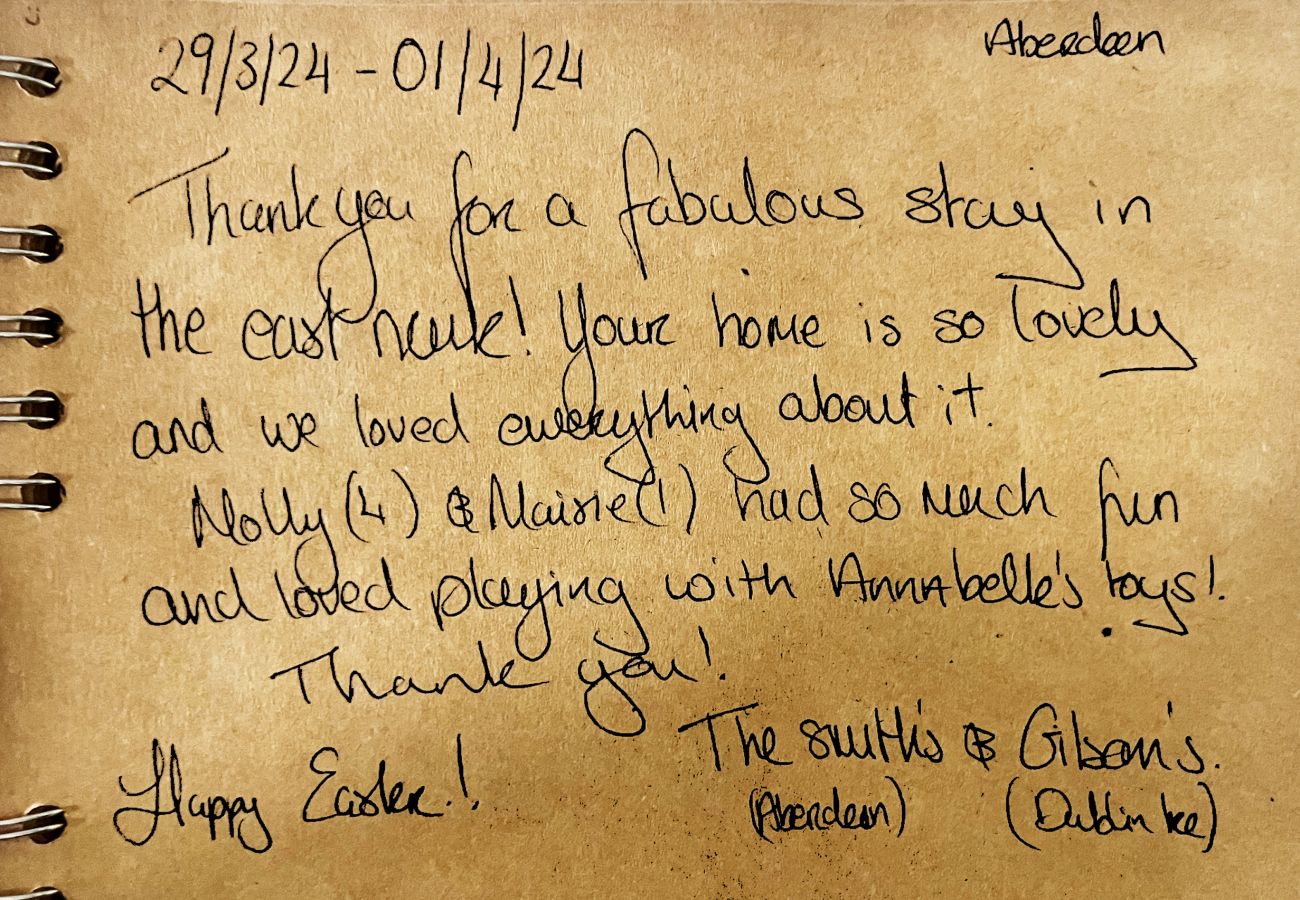 29/3/24 - 01/4/24
Aberdeen
Thank you for a fabulous stay in
the east neuk! Your home is so lovely
and we loved everything about it.
Molly (4) & Maisie (1) had so much fun
and loved playing with Annabelle's toys!.
Thank you!
The Smith's & Gibson's.
Happy Easter!
(Aberdeen) (Dublin Ire)